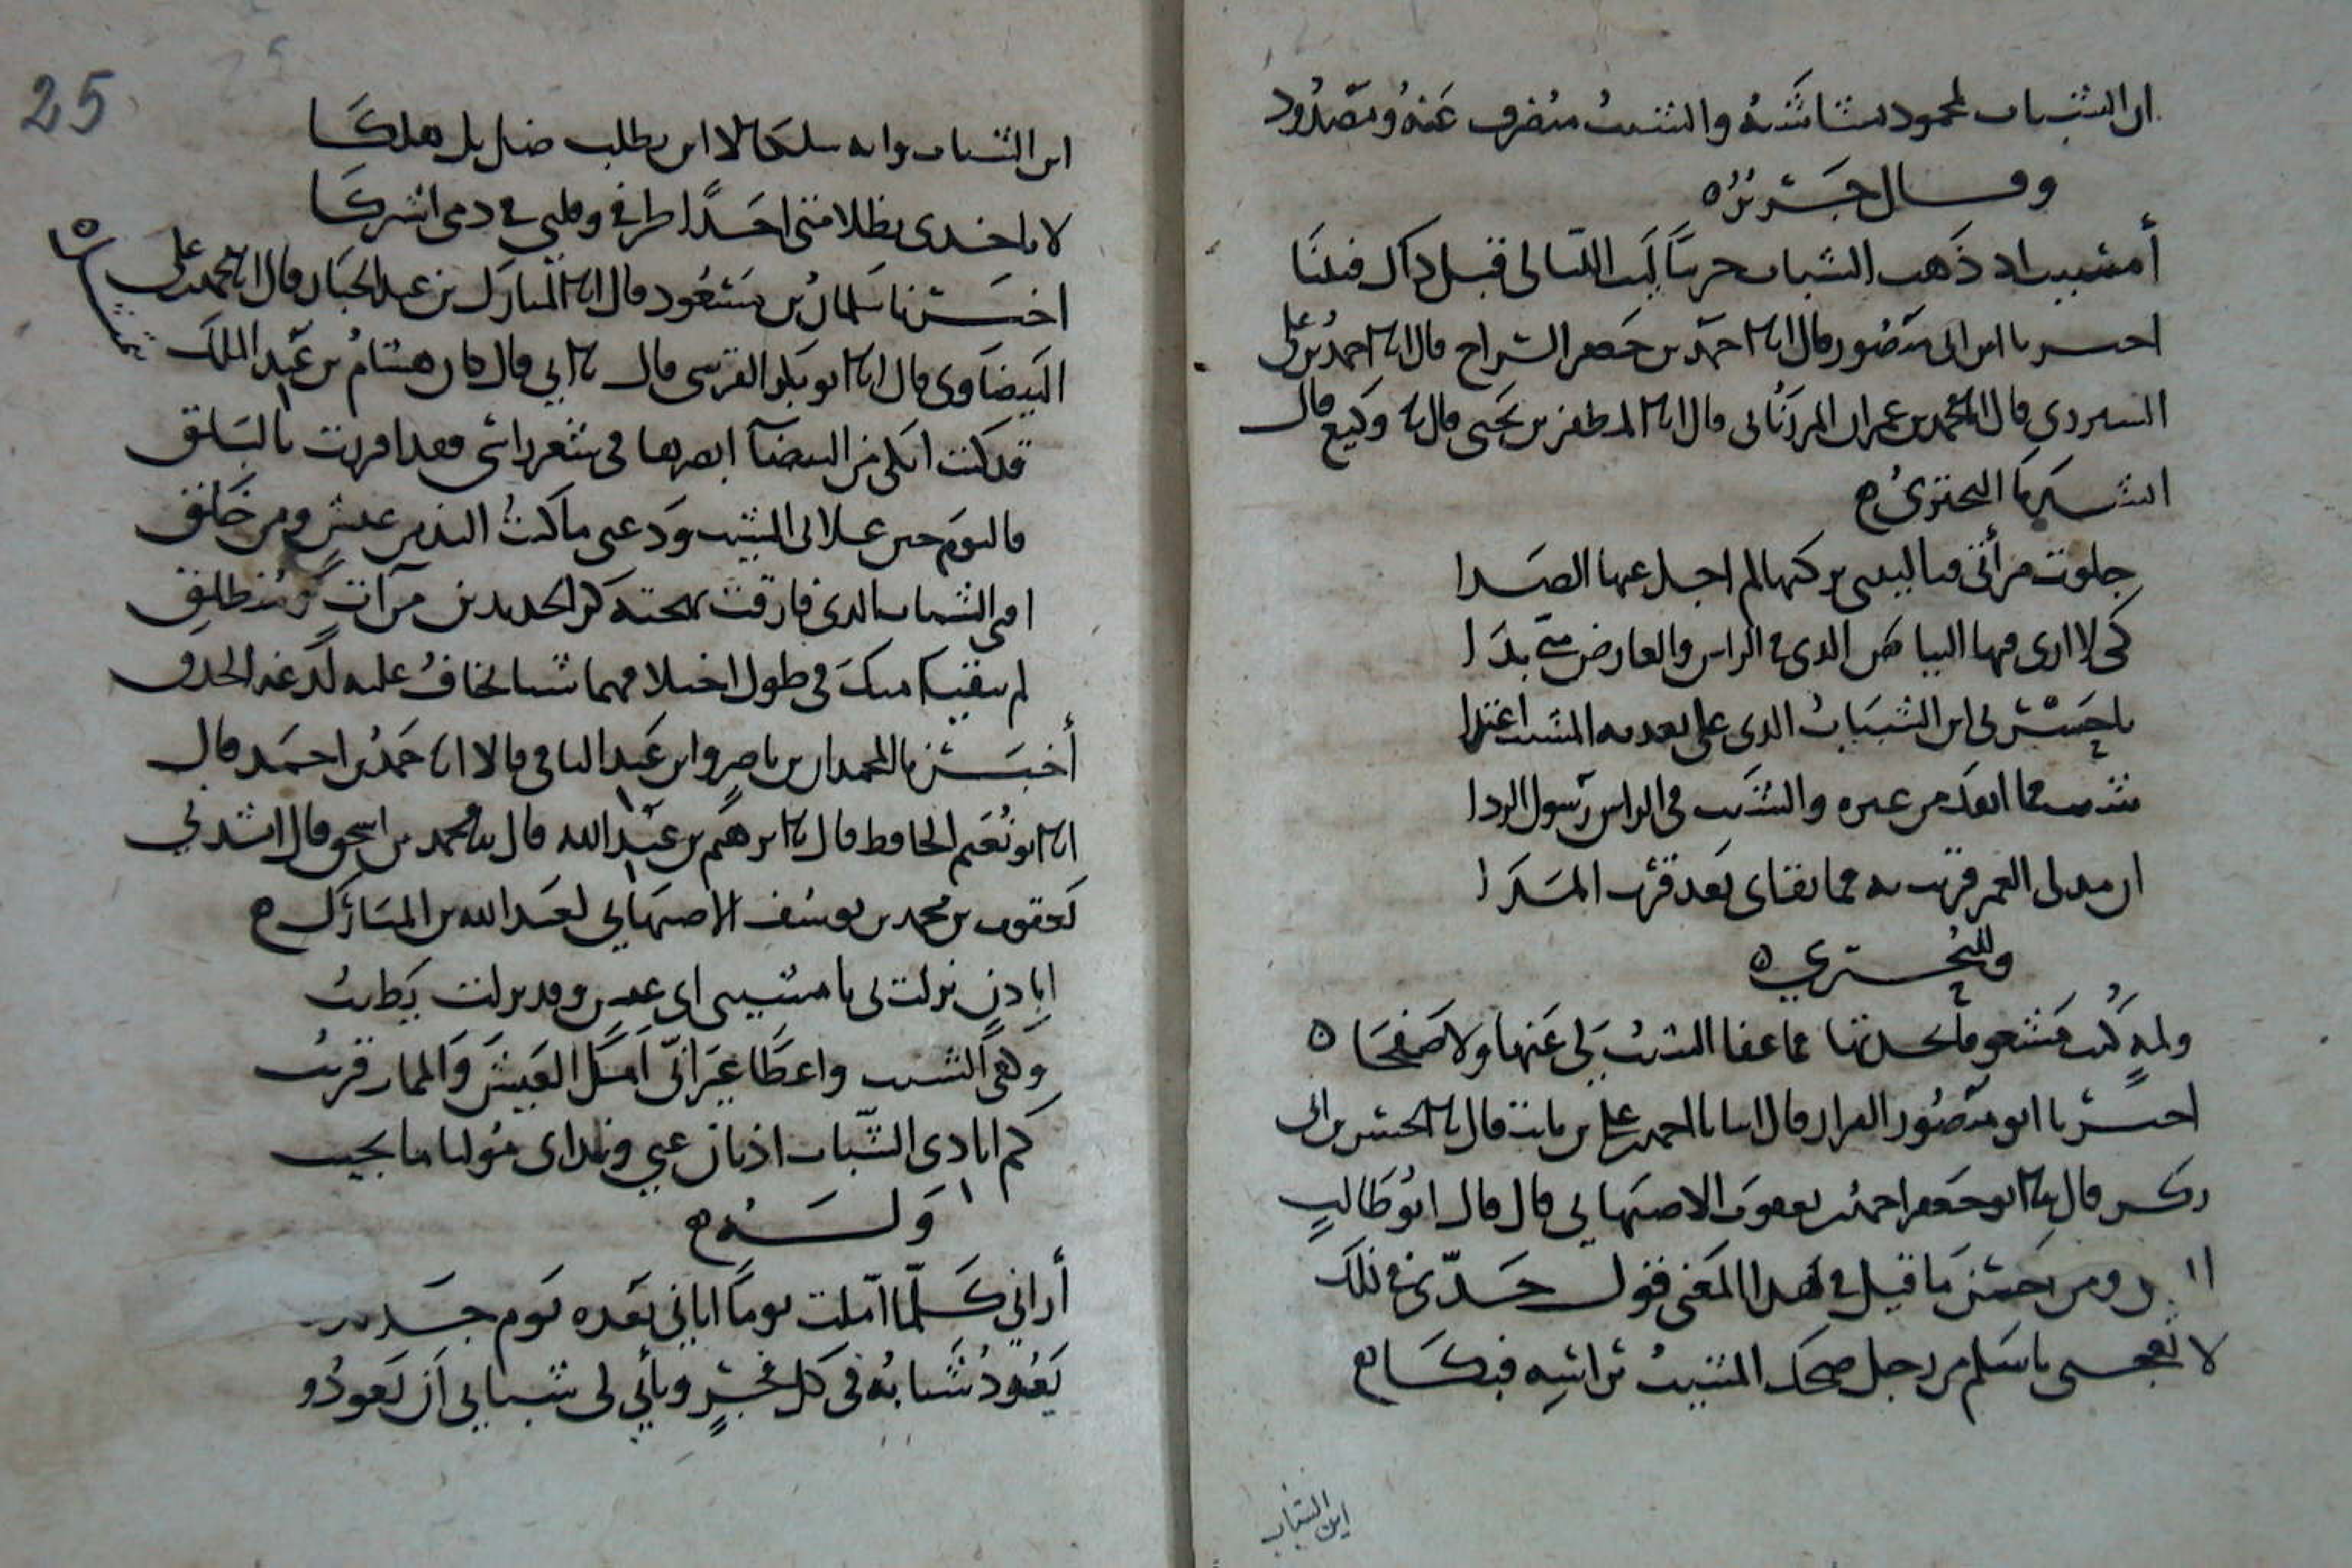 ان الشباب لمحمود بشاشته والشيب منصرف عنه ومصدود
وقال جرير
أمشيب اذ ذهب الشباب حزينا ليت الليالي قبل ذاك فنينا
اخبرنا ابن ابي منصور قال انا احمد بن جعفر السراج قال انا احمد بن علي
قال انا محمد بن عمران المرزباني قال انا المظفر بن يحيى قال نا وكيع قال
انشدنا البحتري
جلوت مرأتي فيا ليتني تركتها لم اجل عنها الصدا
كي لا ارى فيها البياض الذي في الراس والعارض مني بدا
يا حسرتي اين الشباب الذي على تعديه المشيب اعتدا
شبت فما انفك من عبرة والشيب في الراس رسول الردا
ان مد لي العمر قريب به فما بقائي بعد قرب المدا
وللبحتري
احداثها مما عفا الشيب لي عنها ولا صفحا
اخبرنا ابو منصور القزاز قال انبانا احمد بن علي بن ثابت قال نا الحسن بن ابي
بكر قال نا ابو جعفر احمد بن يعقوب الاصبهاني قال قال ابو طالب
ومن احسن ما قيل في هذا المعنى قول جدي في ذلك
لا تعجبي يا سلم من رجل ضحك المشيب براسه فبكا
اين الشباب
25
اين الشباب وايه سلكا لا اين يطلب ضل بل هلكا
لا تاخذي بظلامتي احدا طرفي وقلبي في دمي اشتركا
اخبرنا سلمان بن مسعود قال انا المبارك بن عبد الجبار قال انا محمد بن علي
البيضاوي قال انا ابو بكر القرشي قال نا ابي قال كان هشام بن عبد الملك
قد كنت ابكي من البيضا ابصرها في شعر راسي وقد اقرنت بالبلق
فاليوم حين علاني الشيب ودعني ما كنت التذ من عيش ومن خلق
افنى الشباب الذي فارقت بهجته كر الجديدين من آت ومنطلق
لم يبقيا منك في طول اختلافهما شيا تخاف عليه لذعة الحدق
أخبرنا المحمدان بن ناصر وابن عبد الباقي قالا انا حمد بن احمد قال
انا ابو نعيم الحافظ قال نا ابرهيم بن عبد الله قال نا محمد بن اسحق قال انشدني
يعقوب بن محمد بن يوسف الاصبهاني لعبد الله بن المبارك
اباذن نزلت بي يا مشيبي اي عيش وقد نزلت يطيب
وكفى الشيب واعظا غير اني آمل العيش والممات قريب
كم انادي الشباب اذ بان عني وندائي موليا ما يجيب
وله
أراني كلما أملت يوما اتاني بعده يوم جديد
يعود شبابه في كل فجر ويأبى لي شبابي أن يعودو